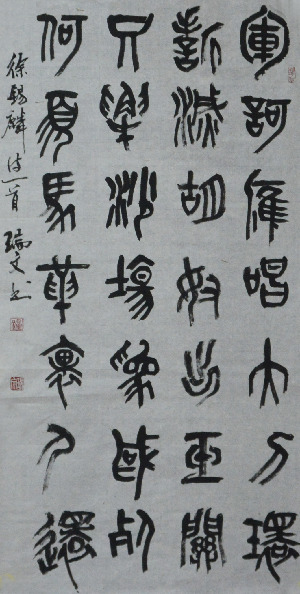 軍歌應唱大刀環
誓滅胡奴出玉關
只解沙場為國死
何須馬革裹尸還
徐錫麟詩一首 瑞文書